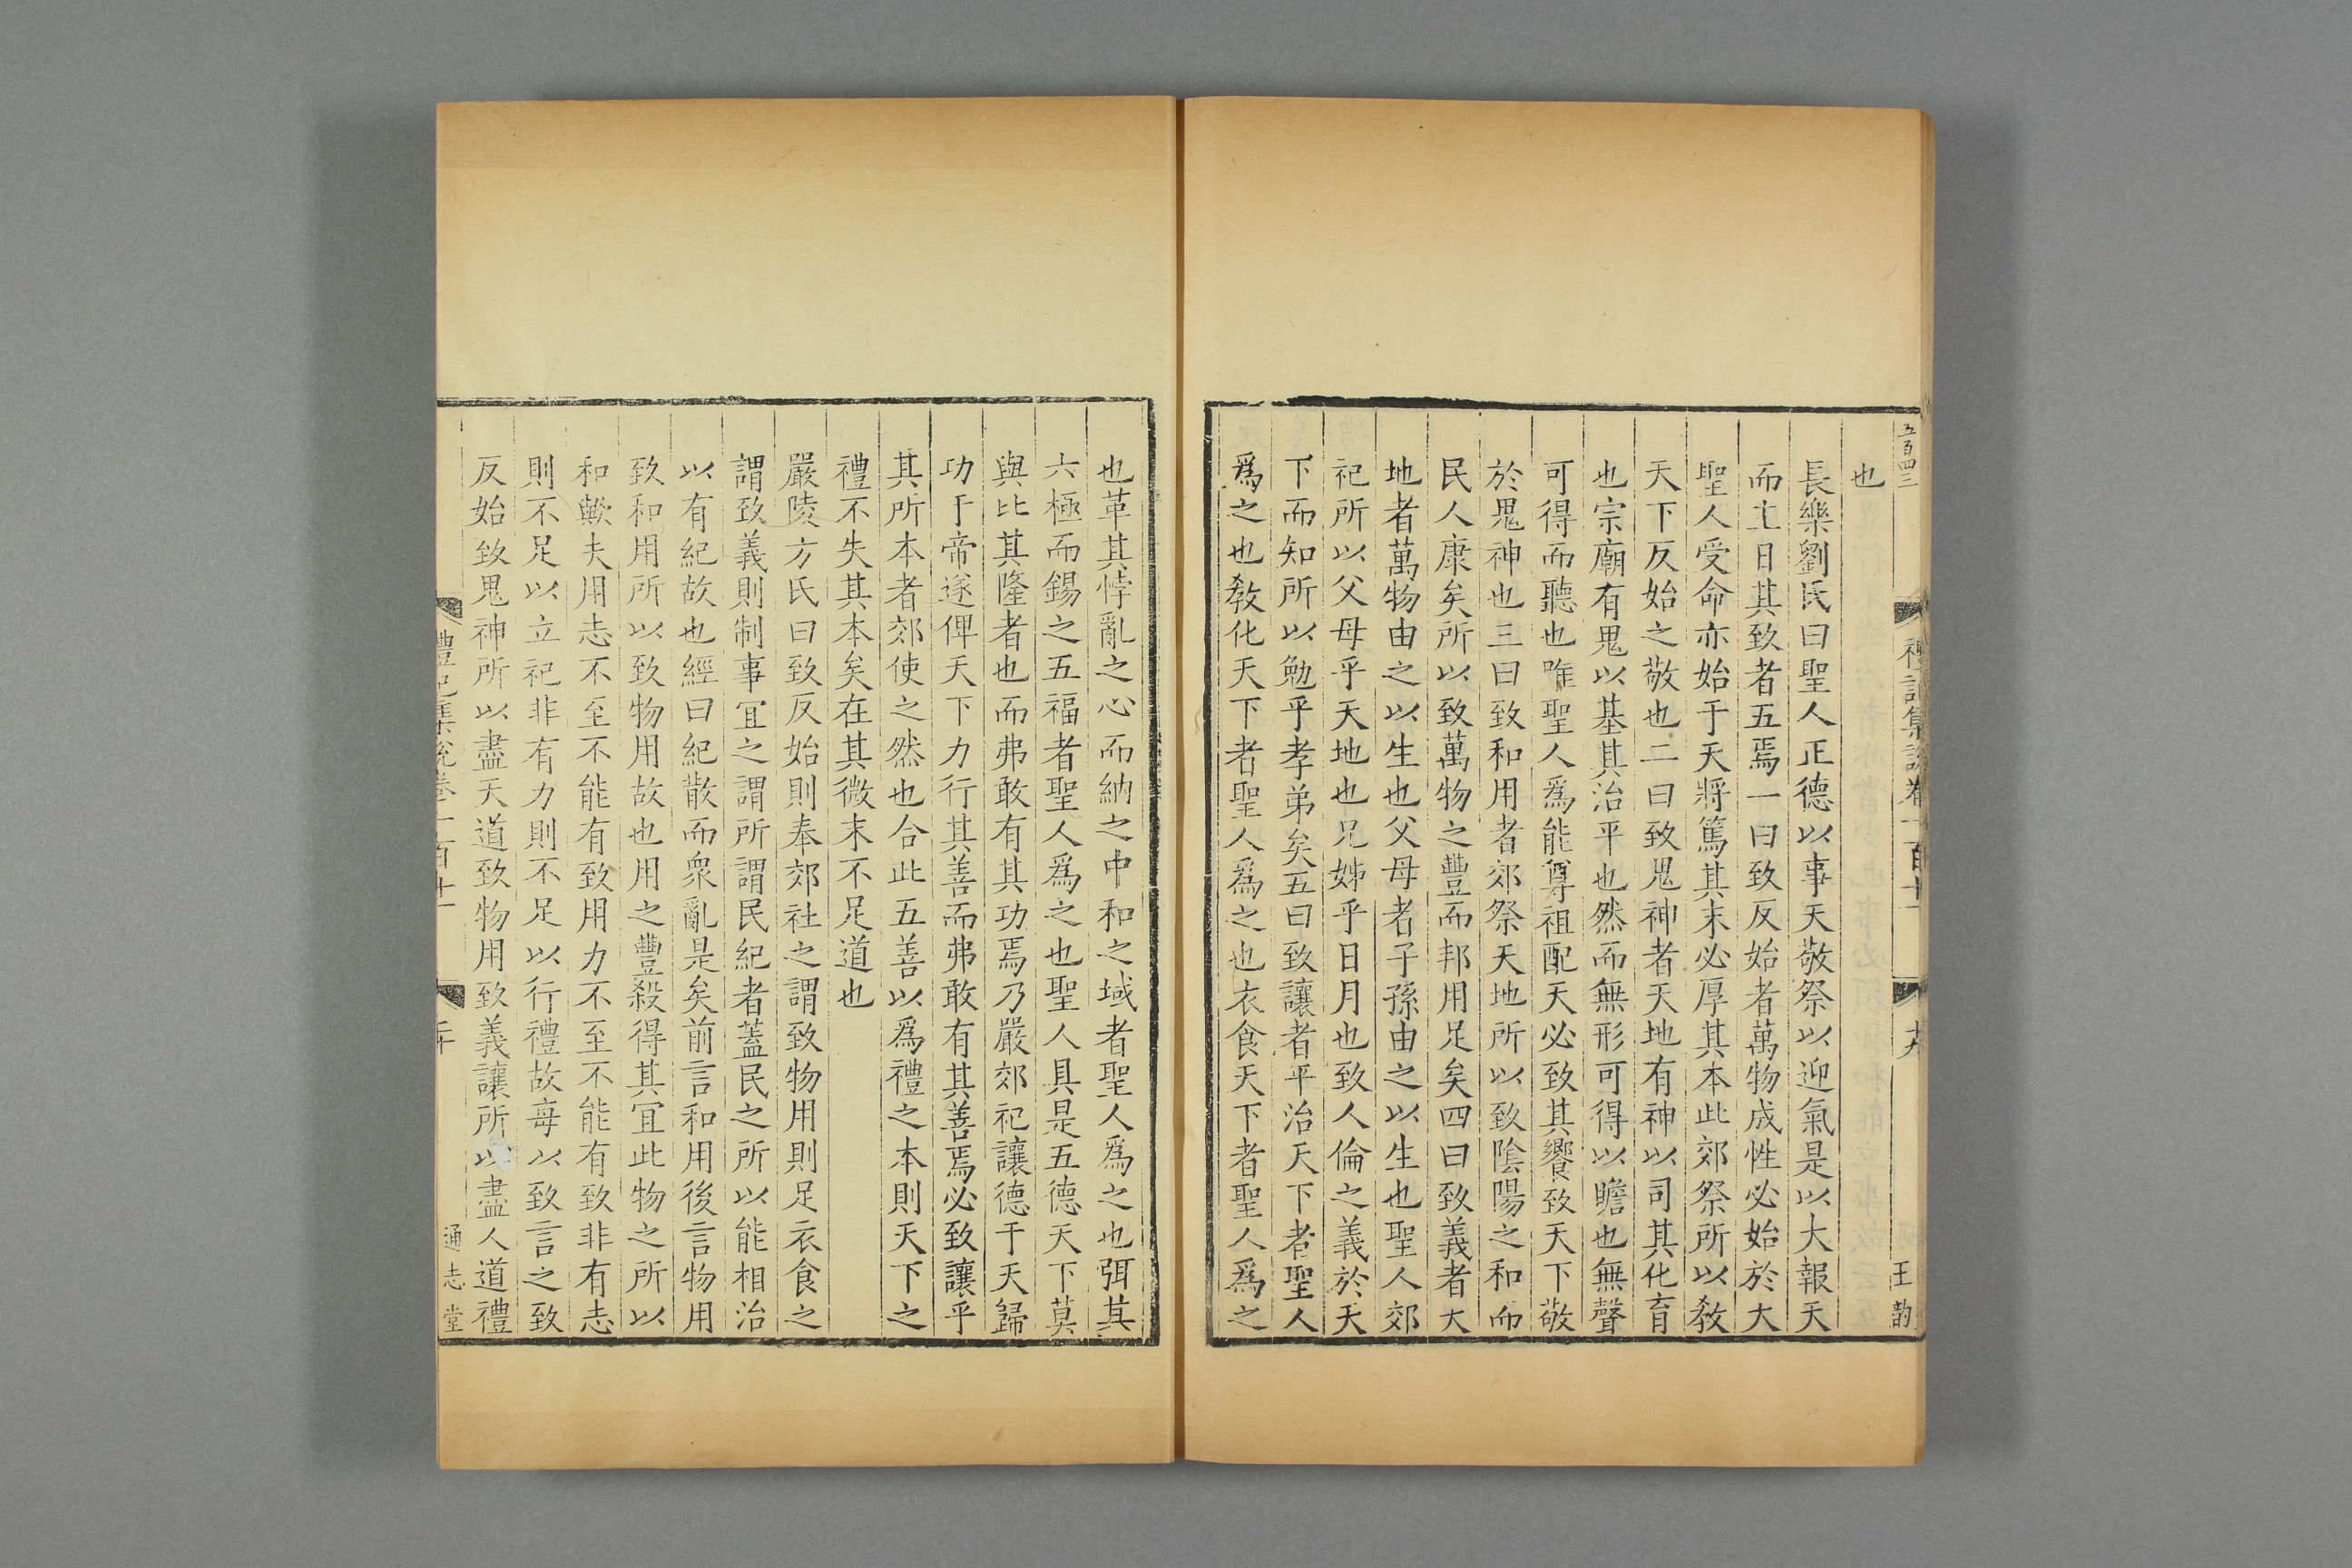 五百四三
禮記集說卷一百十一
十九
王勛
也
長樂劉氏曰聖人正德以事天敬祭以迎氣是以大報天
而主日其致者五焉一曰致反始者萬物成性必始於大
聖人受命亦始于天將篤其末必厚其本此郊祭所以敎
天下反始之敬也二曰致鬼神者天地有神以司其化育
也宗廟有鬼以基其治平也然而無形可得以瞻也無聲
可得而聽也唯聖人爲能尊祖配天必致其饗致天下敬
於鬼神也三曰致和用者郊祭天地所以致陰陽之和而
民人康矣所以致萬物之豐而邦用足矣四曰致義者大
地者萬物由之以生也父母者子孫由之以生也聖人郊
祀所以父母乎天地也兄姊乎日月也致人倫之義於天
下而知所以勉乎孝弟矣五曰致讓者平治天下者聖人
爲之也敎化天下者聖人爲之也衣食天下者聖人爲之
也革其悖亂之心而納之中和之域者聖人爲之也弭其
六極而錫之五福者聖人爲之也聖人具是五德天下莫
與比其隆者也而弗敢有其功焉乃嚴郊祀讓德于天歸
功于帝遂俾天下力行其善而弗敢有其善焉必致讓乎
其所本者郊使之然也合此五善以爲禮之本則天下之
禮不失其本矣在其微末不足道也
嚴陵方氏曰致反始則奉郊社之謂致物用則足衣食之
謂致義則制事宜之謂所謂民紀者蓋民之所以能相治
以有紀故也經曰紀散而衆亂是矣前言和用後言物用
致和用所以致物用故也用之豐殺得其宜此物之所以
和歟夫用志不至不能有致用力不至不能有致非有志
則不足以立祀非有力則不足以行禮故每以致言之致
反始致鬼神所以盡天道致物用致義讓所以盡人道禮
禮記集說卷一百十一
二十
通志堂